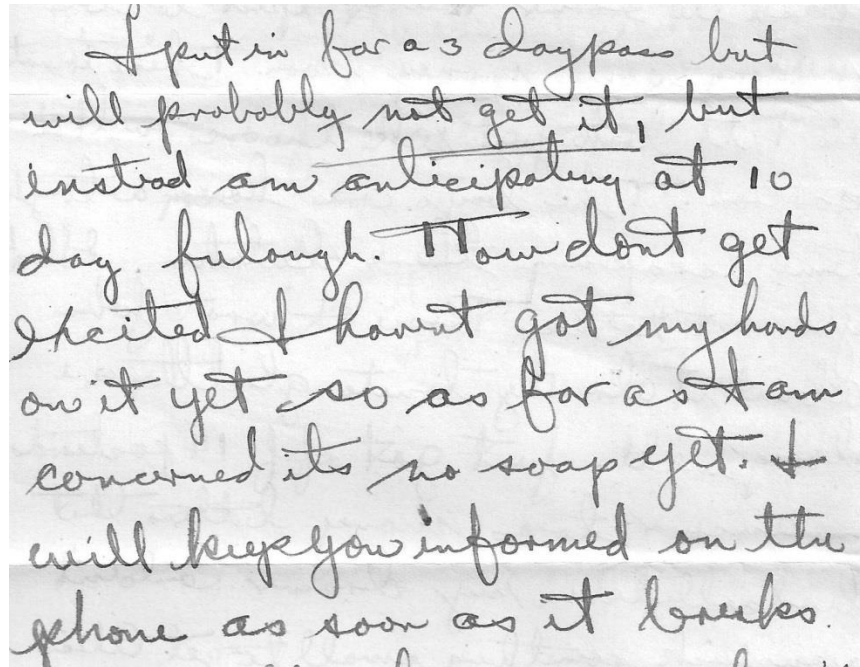 I put in for a 3 day pass but
will probably not get it, but
instead am anticipating at 10
day fulough. Now dont get
excited I havent got my hands
on it yet so as far as I am
concerned its no soap yet. I
will keep you informed on the
phone as soon as it breaks.